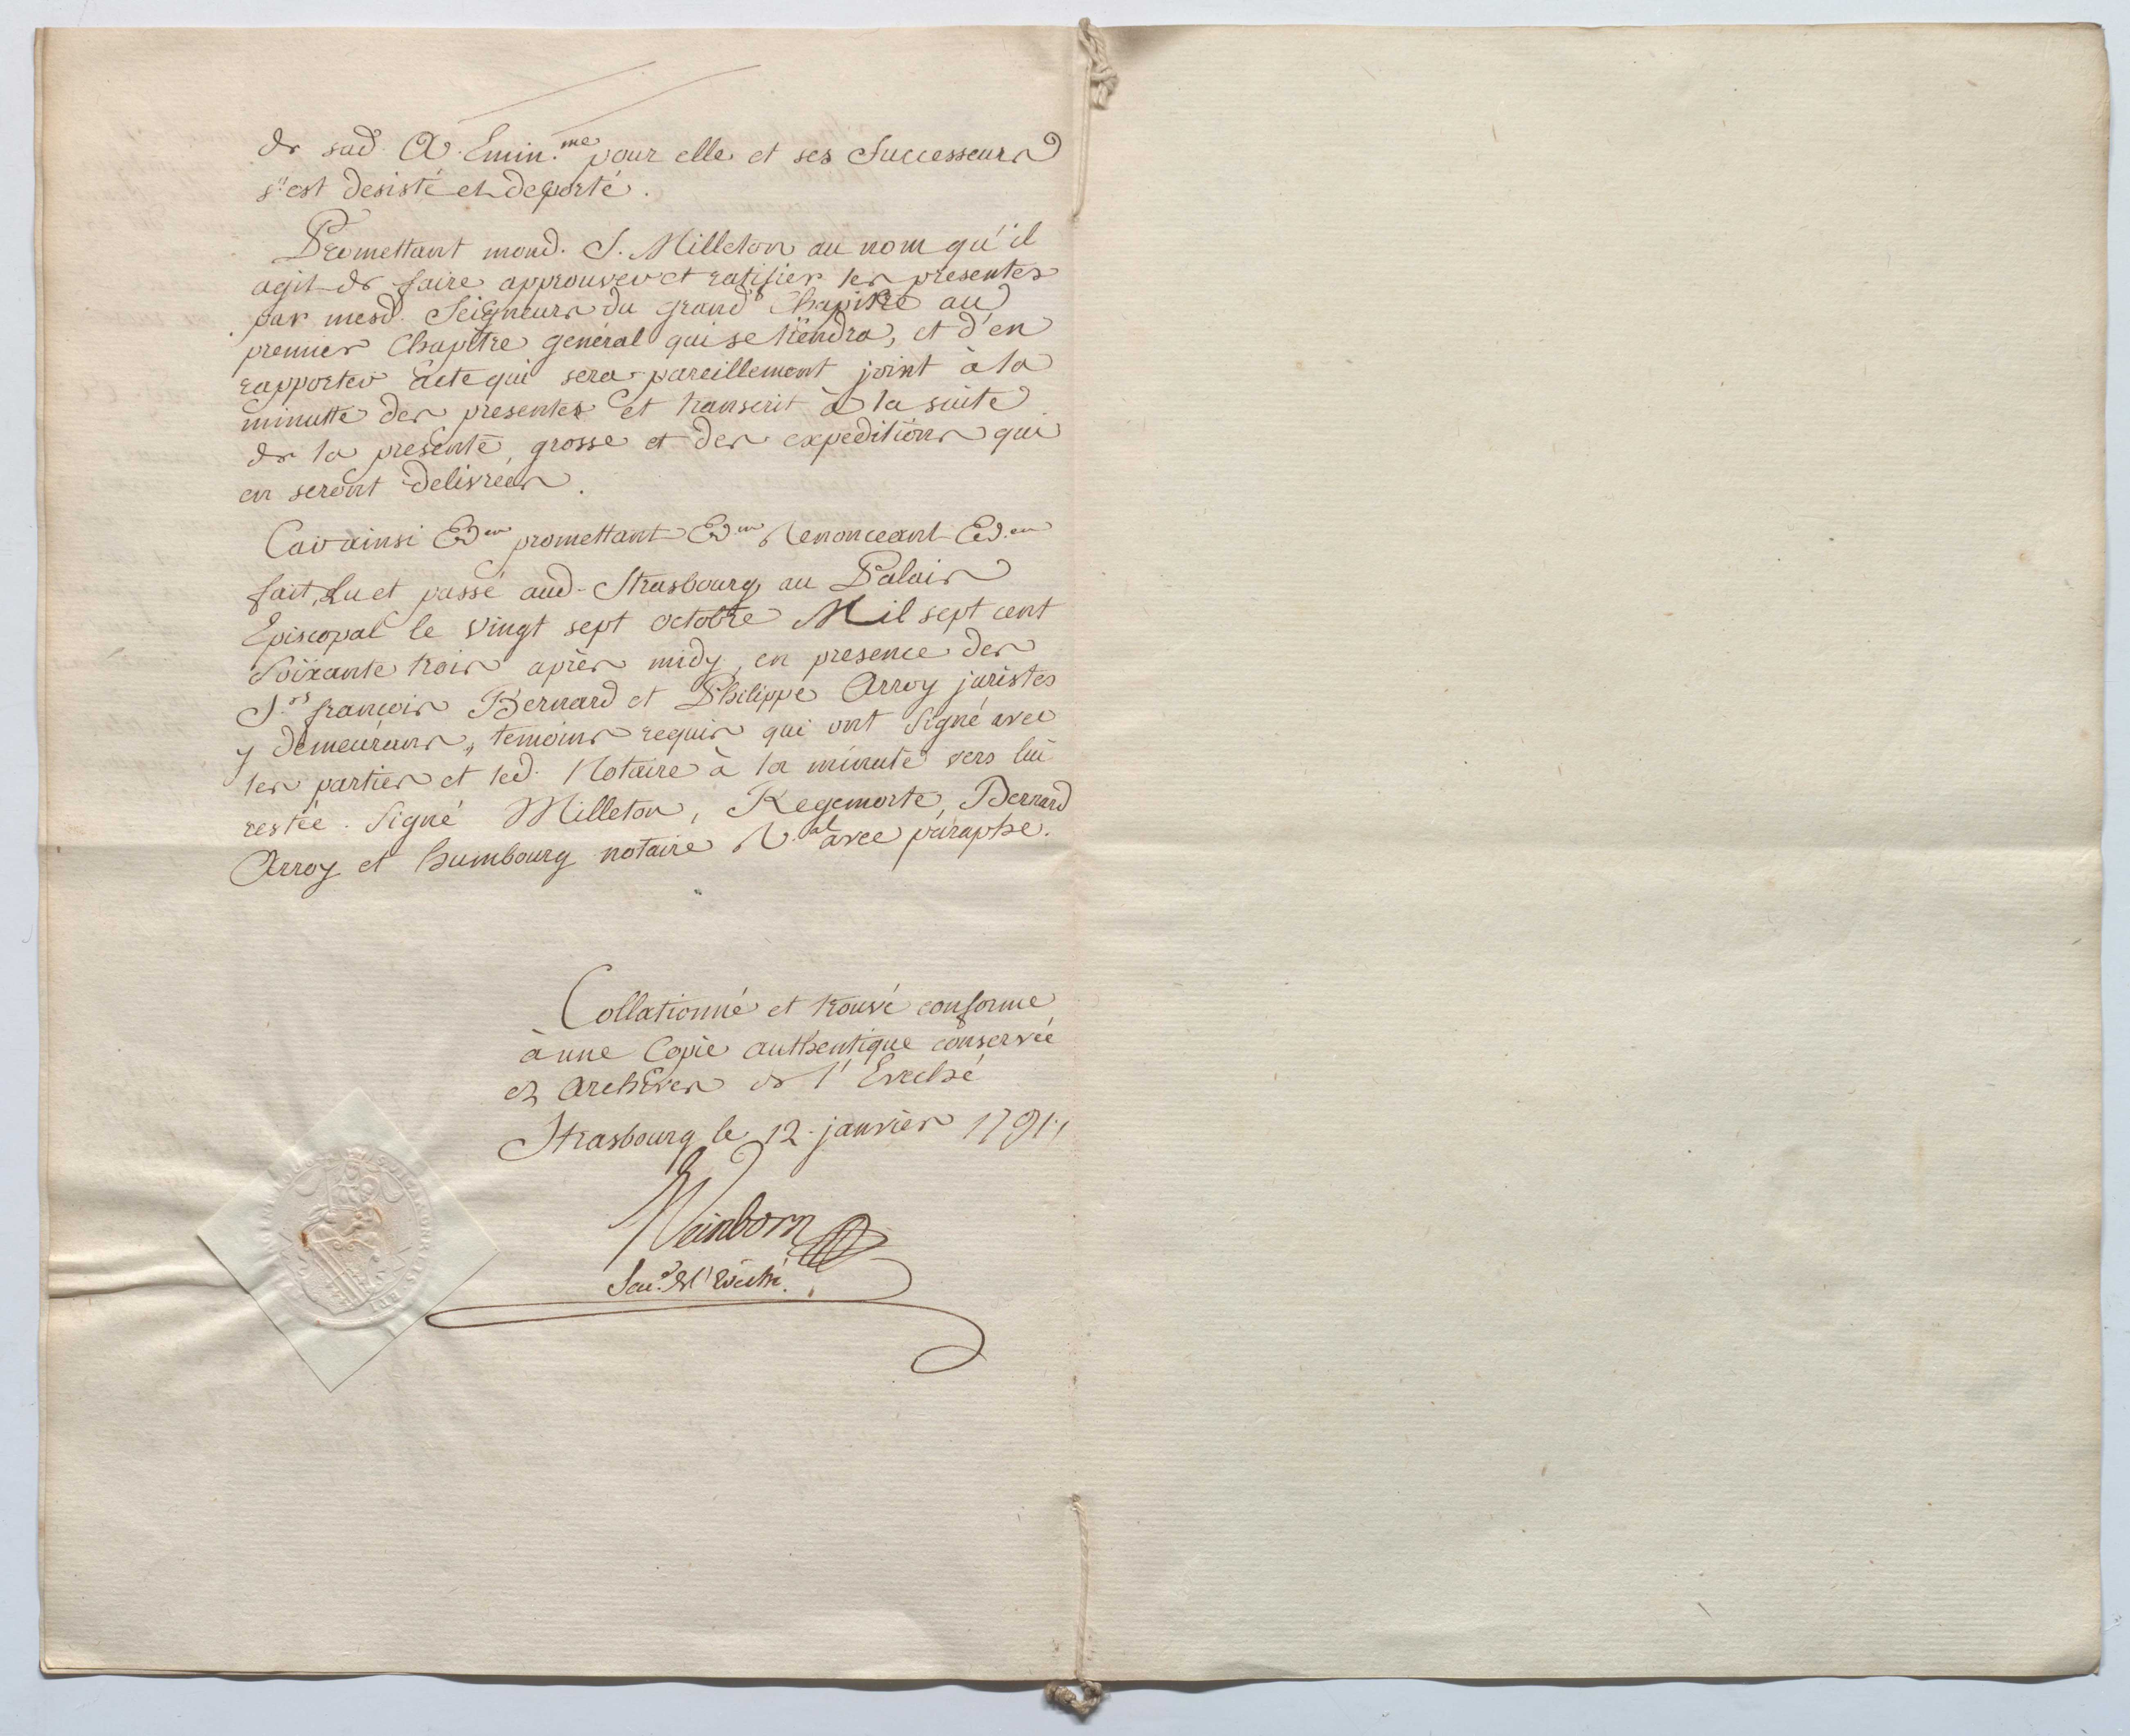 de sad. A. Emin.me pour elle et ses Successeurs
s'est desisté et deporté.
Promettant mond. S. Milleton au nom qu'il
agit de faire approuver et ratifier les presentes
par mesd. Seigneurs du grand Chapitre au
premier Chapitre genéral qui se tiendra, et d'en
rapporter acte qui sera pareillement joint à la
minutte des presentes et transcrit à la suite
de la presente grosse et des expeditions qui
en seront delivrées.
Car ainsi &a promettant &a Renonceant &a
fait, Lu et passé aud. Strasbourg au Palais
Episcopal le vingt sept octobre Mil sept cent
Soixante trois après midy, en presence des
S.rs françois Bernard et Philippe Arroy juristes
y demeurans, temoins requis qui ont Signé avec
les parties et led. Notaire à la minute vers lui
restée. Signé Milleton, Regemorte, Bernard
Arroy et humbourg notaire R.al avec paraphe.
Collationné et trouvé conforme
à une Copie authentique conservée
es Archives de l'Evêché
Strasbourg le 12. janvier 1791.
Weinborn
Secr. de l'Evêché.